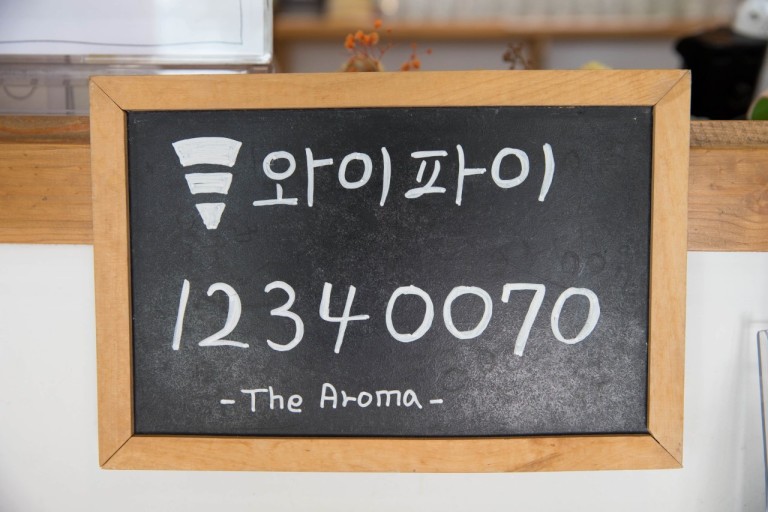 와이파이
12340070
-The Aroma-